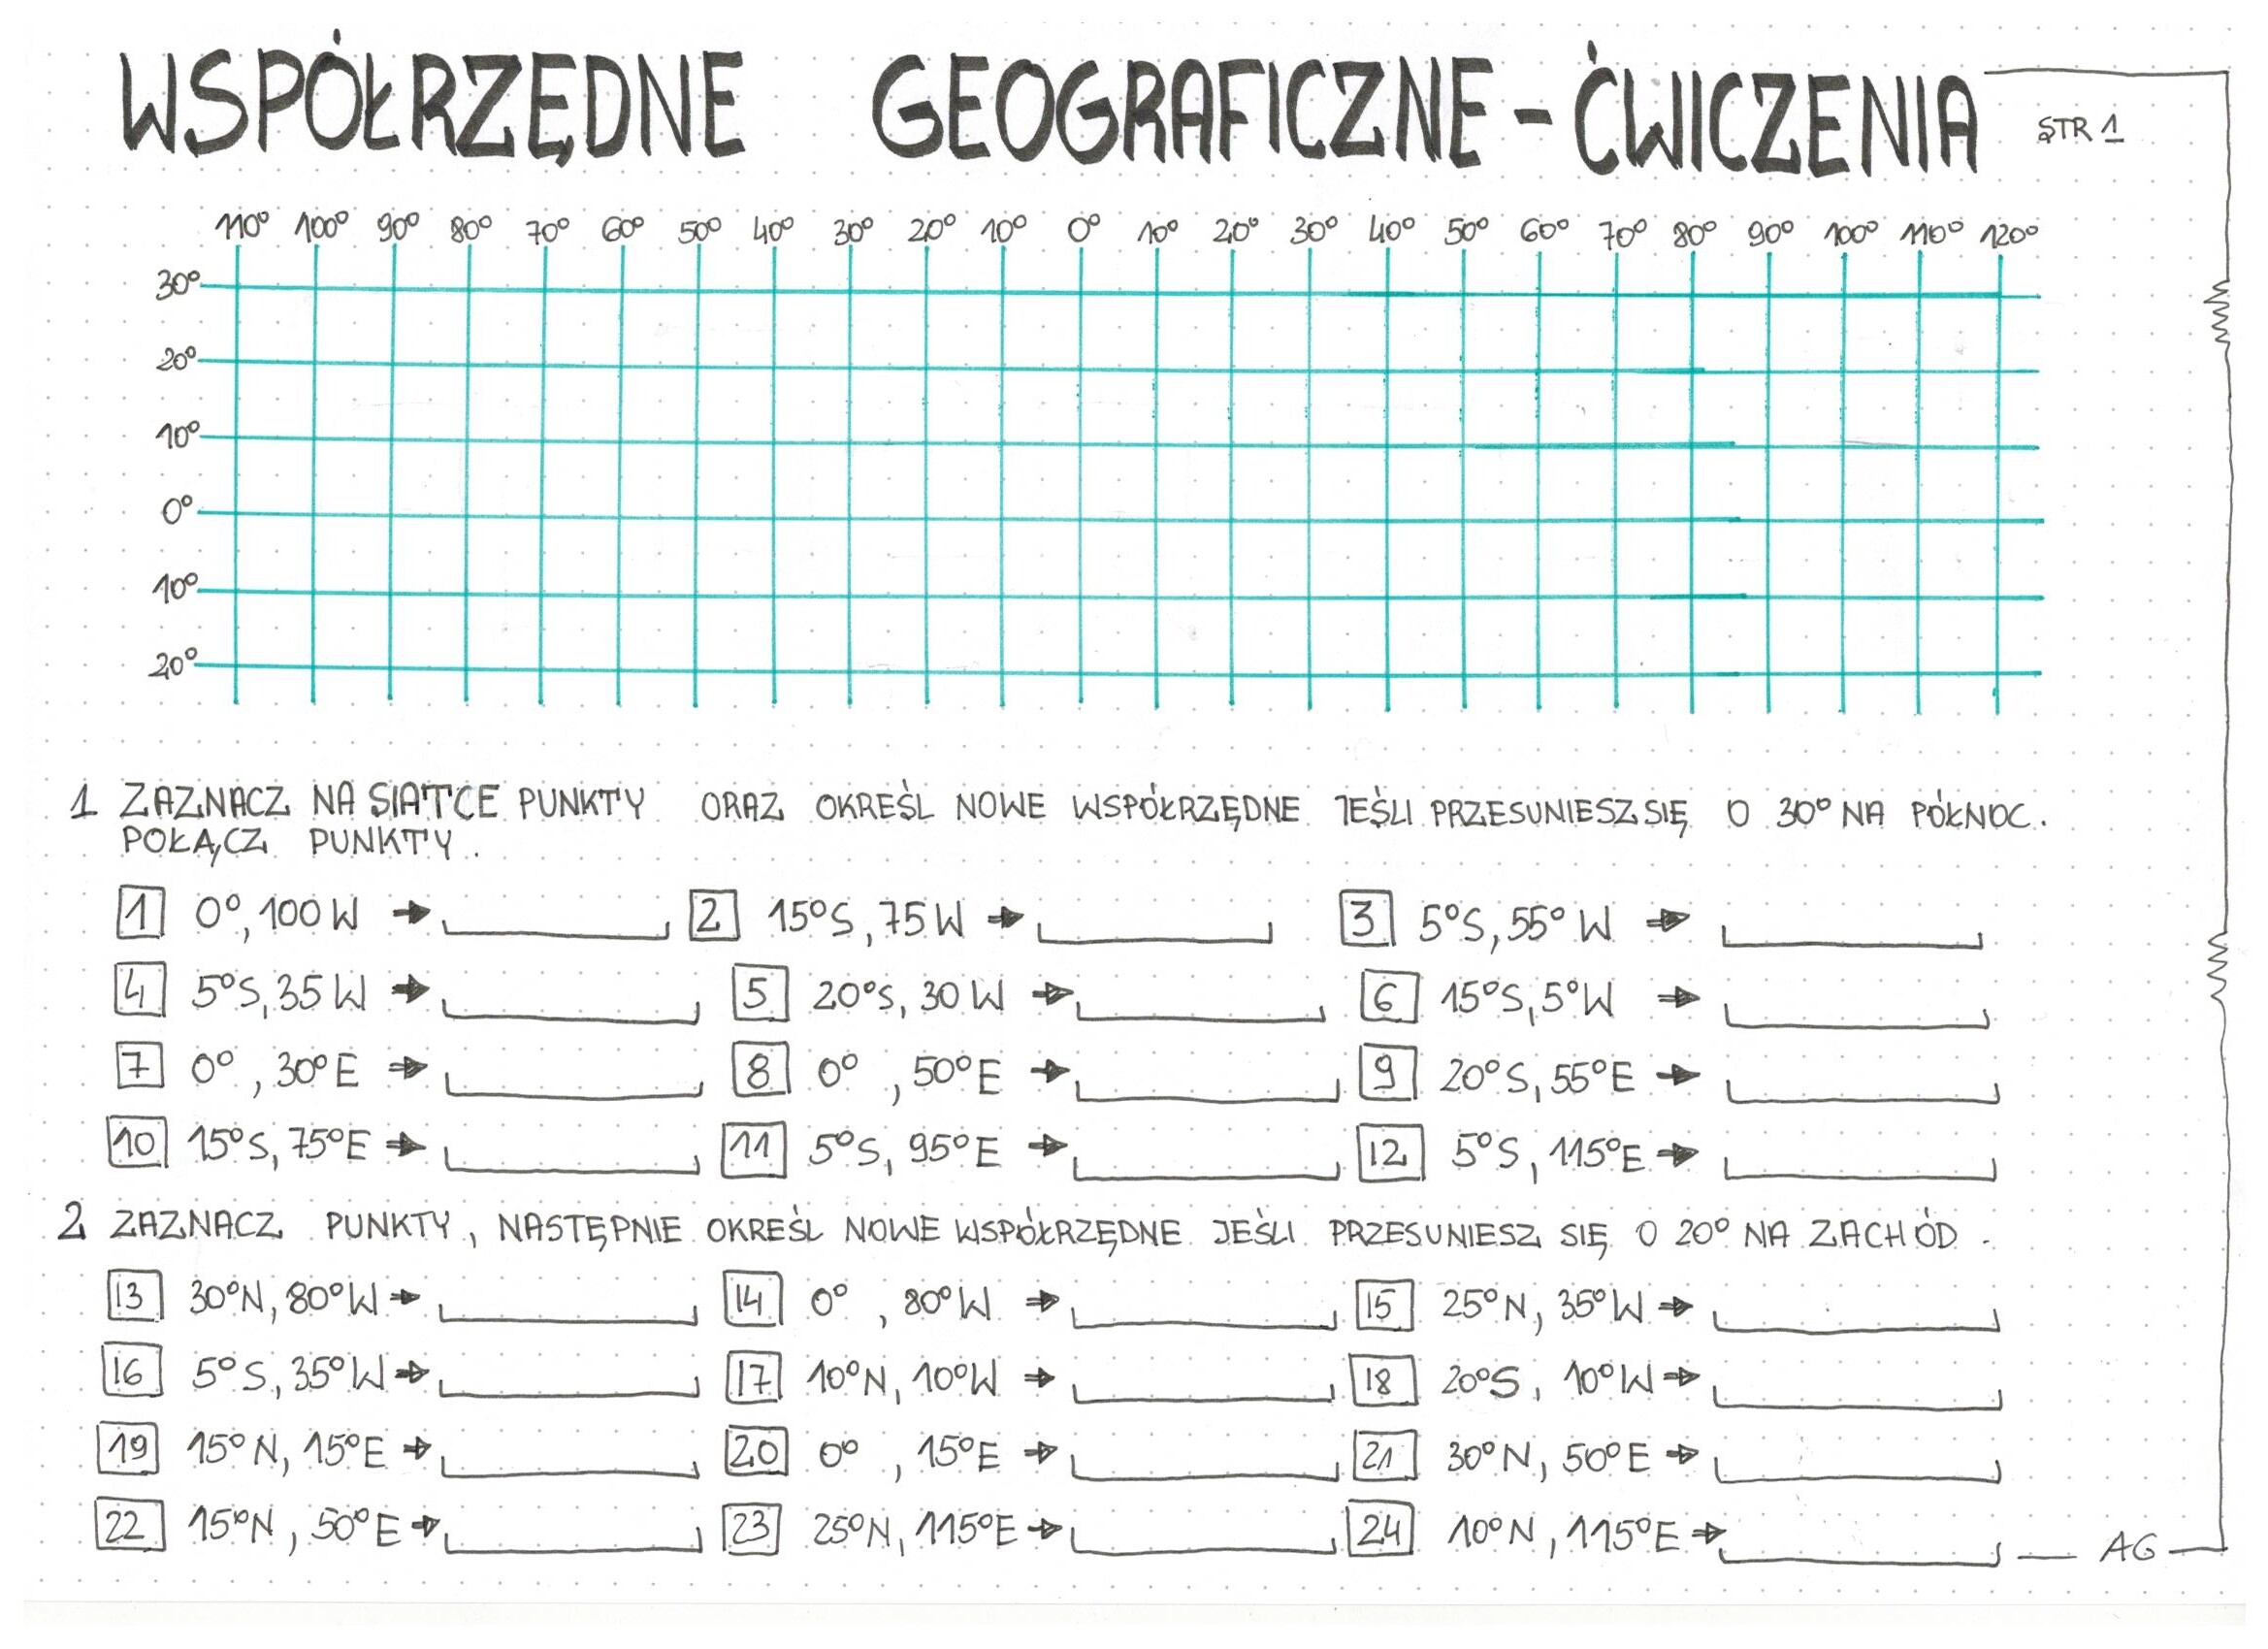 WSPÓŁRZĘDNE GEOGRAFICZNE - ĆWICZENIA STR 1
110° 100° 90° 80° 70° 60° 50° 40° 30° 20° 10° 0° 10° 20° 30° 40° 50° 60° 70° 80° 90° 100° 110° 120°
30°
20°
10°
0°
10°
20°
1 ZAZNACZ NA SIATCE PUNKTY ORAZ OKREŚL NOWE WSPÓŁRZĘDNE JEŚLI PRZESUNIESZ SIĘ O 30° NA PÓŁNOC.
POŁĄCZ PUNKTY.
1 0°, 100 W → 2 15°S, 75 W → 3 5°S, 55° W →
4 5°S, 35 W → 5 20°S, 30 W → 6 15°S, 5°W →
7 0°, 30°E → 8 0°, 50°E → 9 20°S, 55°E →
10 15°S, 75°E → 11 5°S, 95°E → 12 5°S, 115°E →
2 ZAZNACZ PUNKTY, NASTĘPNIE OKREŚL NOWE WSPÓŁRZĘDNE JEŚLI PRZESUNIESZ SIĘ O 20° NA ZACHÓD.
13 30°N, 80°W → 14 0°, 80°W → 15 25°N, 35°W →
16 5°S, 35°W → 17 10°N, 10°W → 18 20°S, 10°W →
19 15°N, 15°E → 20 0°, 15°E → 21 30°N, 50°E →
22 15°N, 50°E → 23 25°N, 115°E → 24 10°N, 115°E →
AG